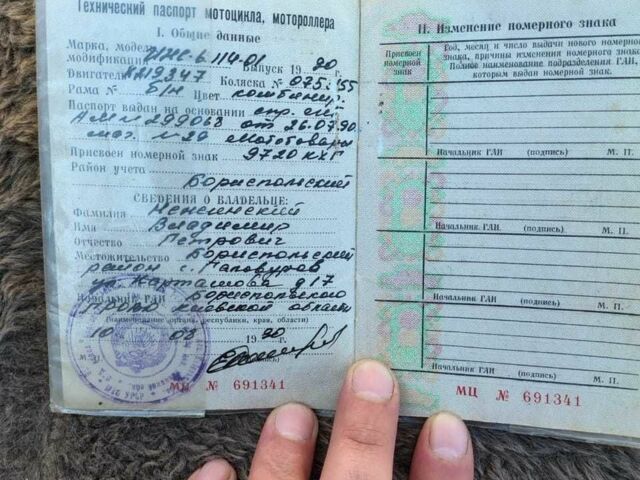 Технический паспорт мотоцикла, мотороллера
I. Общие данные
Марка, модель,
модификация 114-01 Выпуск 1990 г.
Двигатель Коляска №
Рама № Б/Н Цвет комбинир.
Паспорт выдан на основании спр. сч.
АМ № 299063 от 26.07.90
маг. №29 Мототовары
Присвоен номерной знак 9720 КХГ
Район учета
Бориспольский
СВЕДЕНИЯ О ВЛАДЕЛЬЦЕ:
Фамилия
Имя Владимир
Отчество Петрович
Местожительство Бориспольский
район с.
ул. д 17
Начальник ГАИ Бориспольского
Киевской области
(Наименование органа, республики, края, области)
10 08 1990 г.
М. П.
МЦ № 691341
II. Изменение номерного знака
Присвоен номерной знак
Год, месяц и число выдачи нового номерного знака, причины изменения номерного знака. Полное наименование подразделения ГАИ, которым выдан номерной знак.
Начальник ГАИ (подпись) М. П.
Начальник ГАИ (подпись) М. П.
Начальник ГАИ (подпись) М. П.
Начальник ГАИ (подпись) М. П.
МЦ № 691341